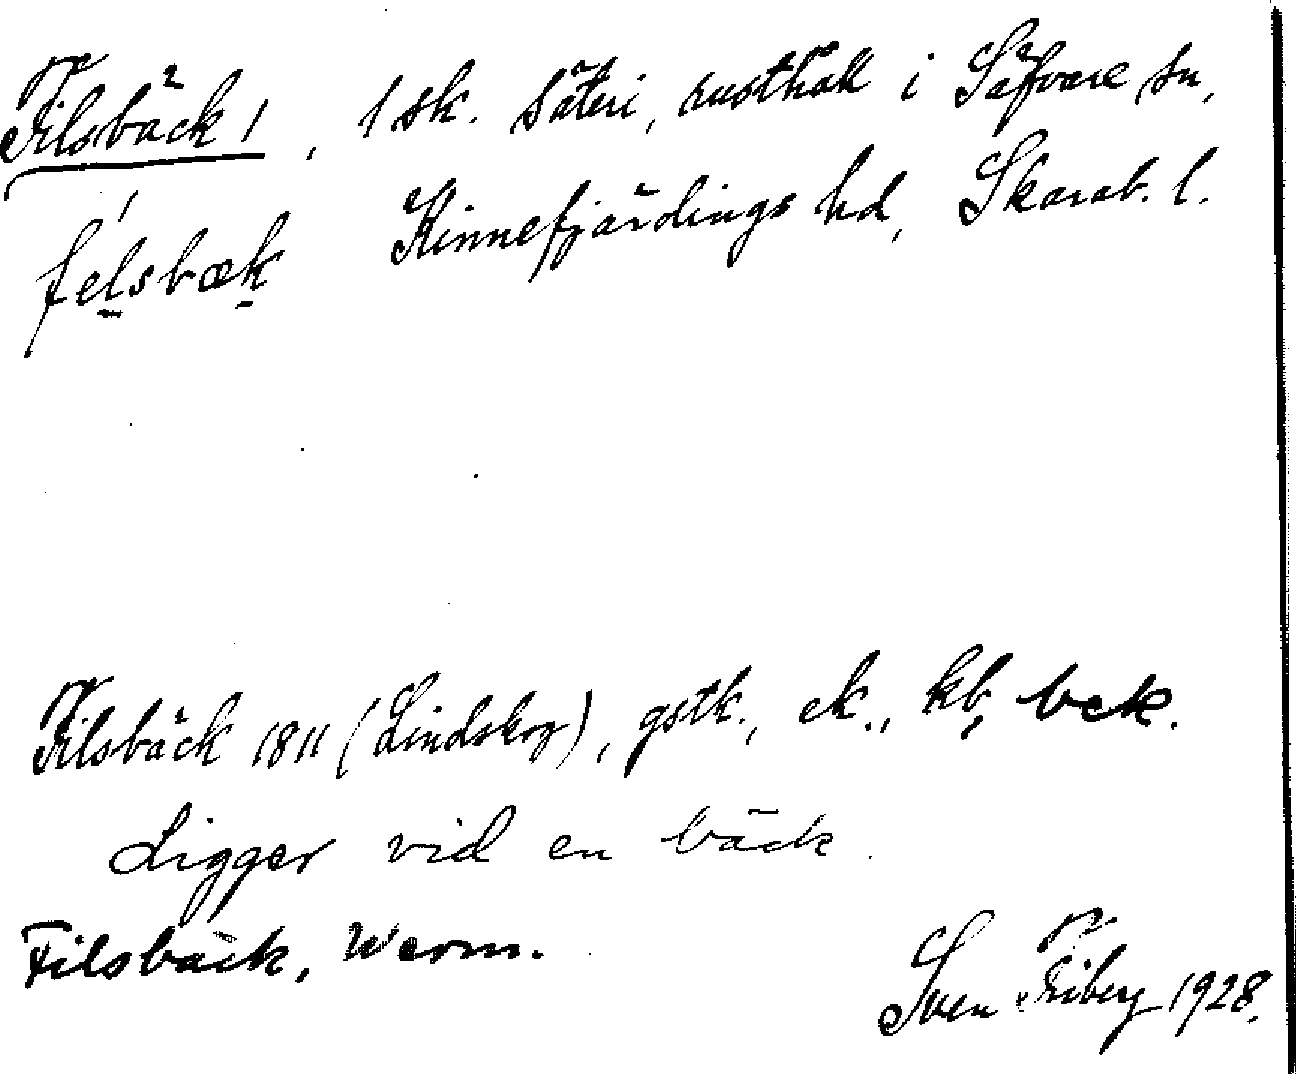 Filsbäck 1, 1 sk. säteri, rusthåll i Säfvare sn,
felsbæk Kinnefjärdings hd, Skarab. l.
Filsbäck 1811 (Lindskog), gstk., ek., kb, bck.
Ligger vid en bäck.
Filsbäck, Werm.
Sven Friberg 1928.